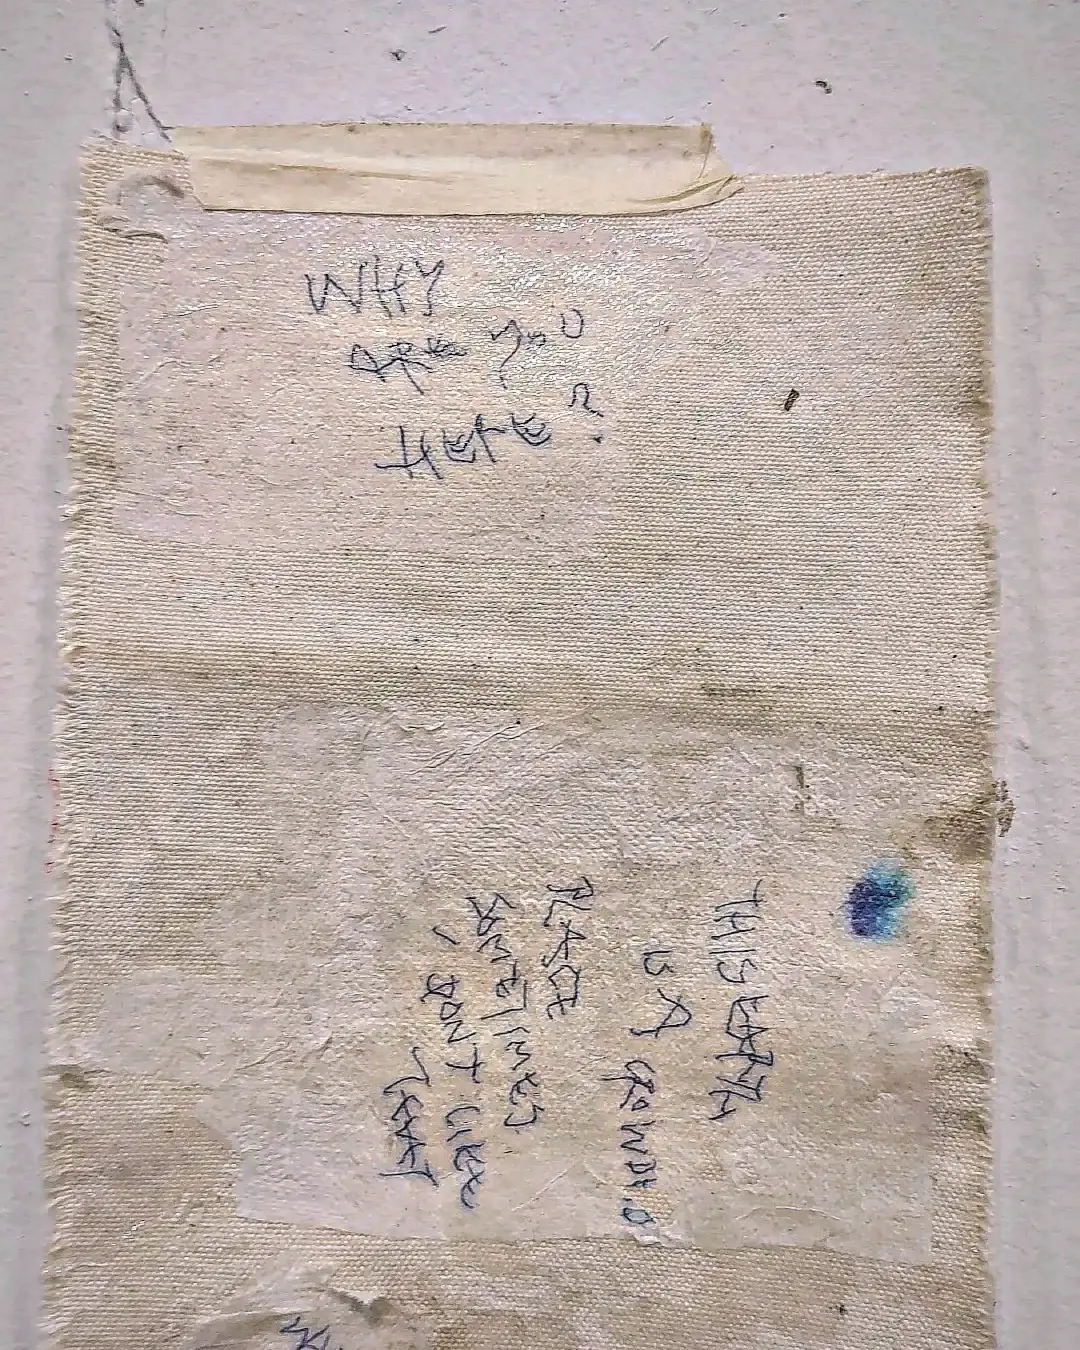 WHY
ARE YOU
HERE?
THIS EARTH
IS A CROWDED
PLACE
SOMETIMES
I DON'T LIKE
THAT